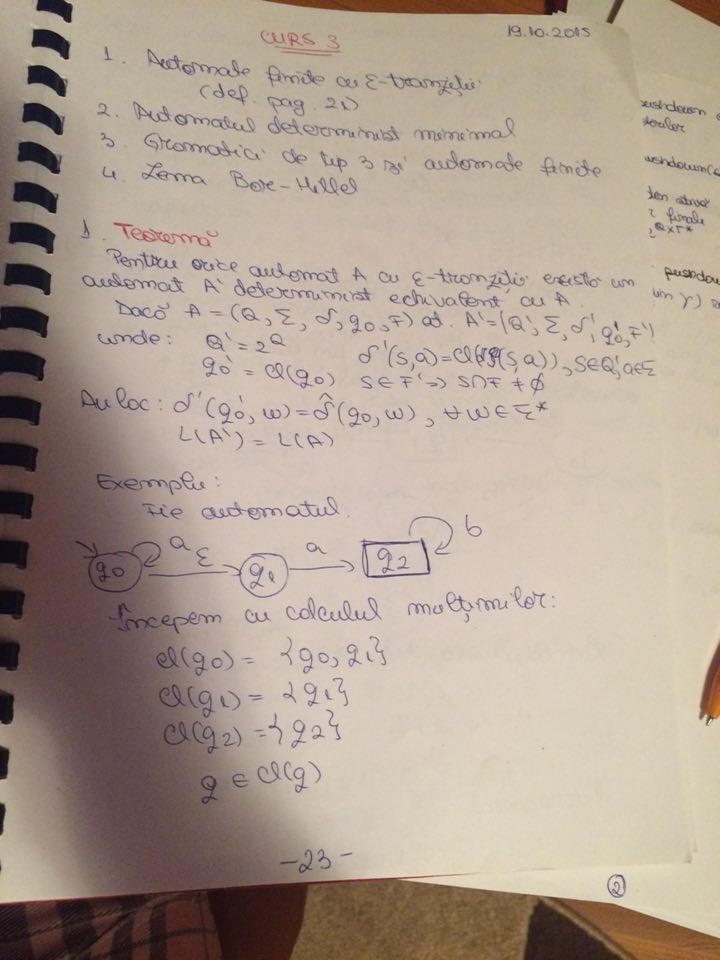 CURS 3
19.10.2015
1. Automate finite cu ε-tranziții
(def. pag. 21)
2. Automatul determinist minimal
3. Gramatici de tip 3 și automate finite
4. Lema Bar-Hillel
1. Teoremă
Pentru orice automat A cu ε-tranziții există un
automat A' determinist echivalent cu A.
Dacă A = (Q, Σ, δ, q0, F) at. A' = (Q', Σ, δ', q0', F')
unde: Q' = 2^Q δ'(s,a) = Cl(δ(s,a)), s∈Q', a∈Σ
q0' = Cl(q0) S∈F' => S∩F ≠ ∅
Au loc: δ'(q0', w) = δ̂(q0, w), ∀w∈Σ*
L(A') = L(A)
Exemplu:
Fie automatul.
q0 a ε q1 a q2 b
Începem cu calculul mulțimilor:
Cl(q0) = {q0, q1}
Cl(q1) = {q1}
Cl(q2) = {q2}
q ∈ Cl(q)
-23-
2
pushdown
finale
pushdow